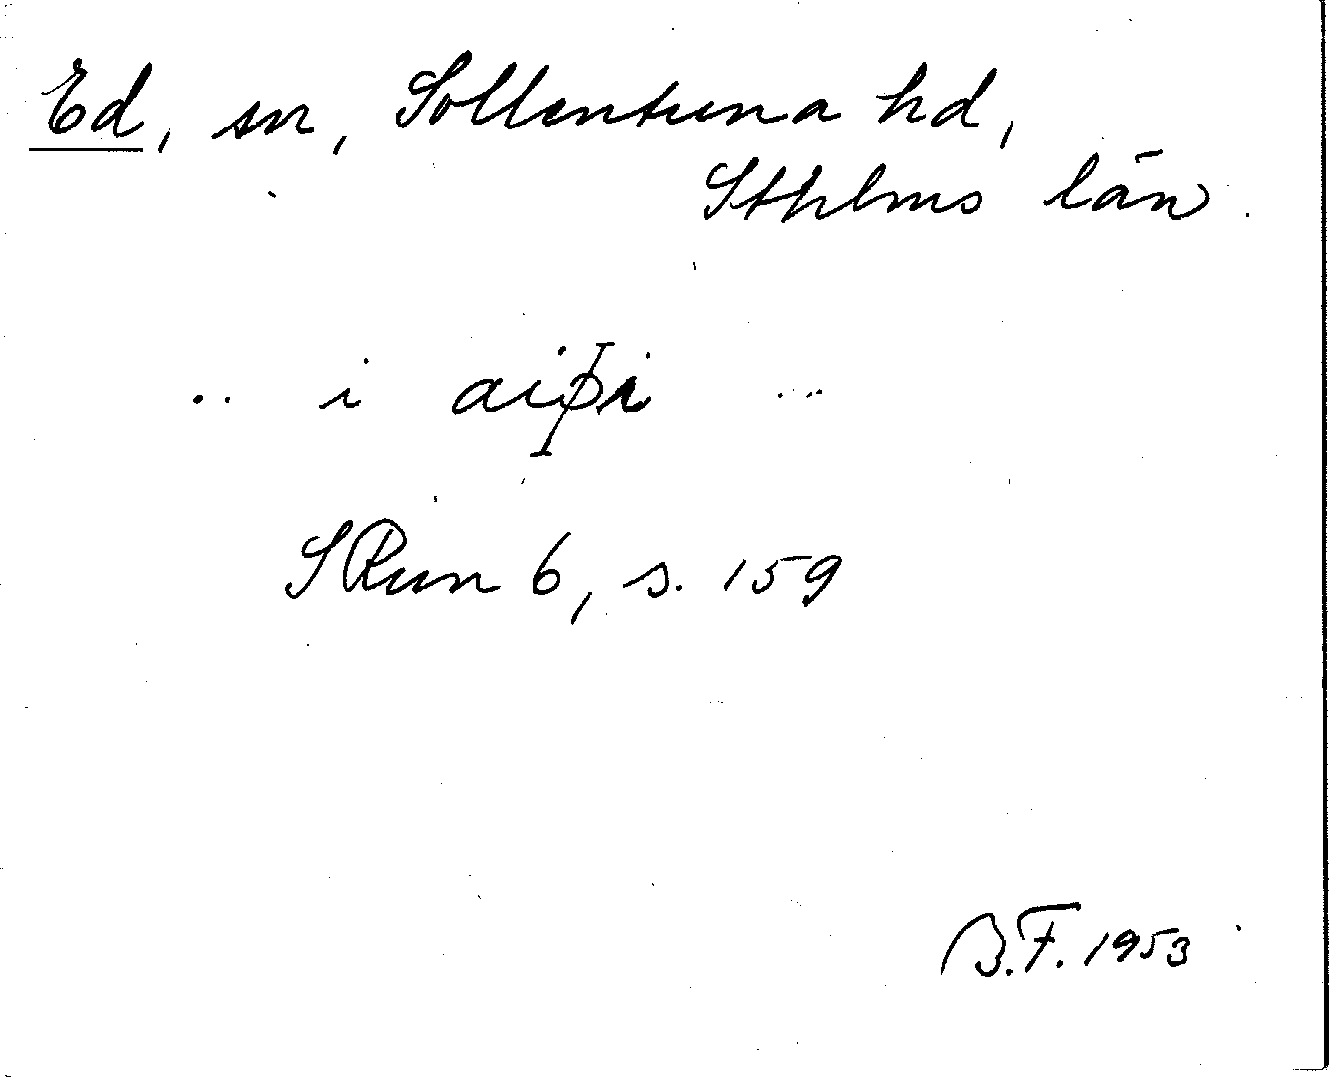 Ed, sn, Sollentuna hd,
Sthlms län.
.. i aiþi ...
SRun 6, s. 159
B.F. 1953